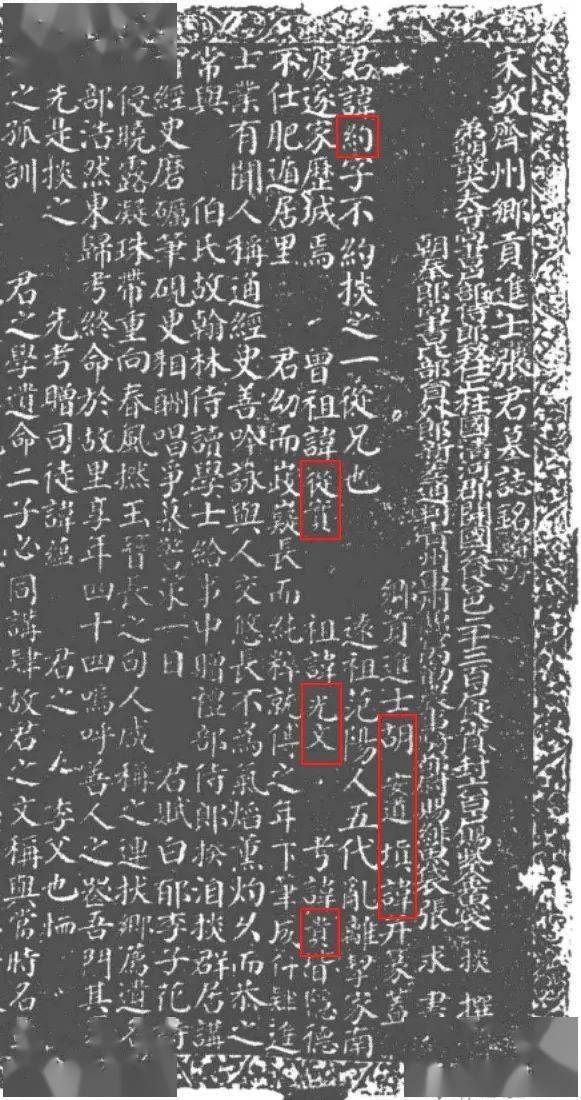 宋故齊州鄉貢進士張君墓誌銘
大夫守尚書部侍郎致仕上柱國清河郡開國公食邑二千三百戶食實封二百戶賜紫金魚袋 掞 撰
朝奉郎尚書部員外郎新差通判州軍州兼管內勸農事騎都尉賜緋魚袋張 求 書
鄉貢進士胡 安道 填諱并篆蓋
君諱約字不約掞之一從兄也 遠祖范陽人五代亂離挈家南
渡遂家歷城焉 曾祖諱從賁 祖諱光文 考諱賁皆隱德
不仕肥遁居里 君幼而歧嶷長而純粹就傅之年下筆成行雖進
士業有聞人稱通經史善吟詠與人交悠長不為氣焰熏灼久而恭之
常與 伯氏故翰林侍讀學士給事中贈禮部侍郎揆洎掞群居講
經史磨礪筆硯更相酬唱爭警策一日 君賦白郁李子花詩
侵曉露凝珠帶重向春風撚玉簪長之句人咸稱之連拔鄉薦遺名
部浩然東歸考終命於故里享年四十四嗚呼善人之逝吾門其
先是掞之 先考贈司徒諱蘊 君之 季父也恤
之孤訓 君之學遺命二子必同講肄故君之文稱與當時名